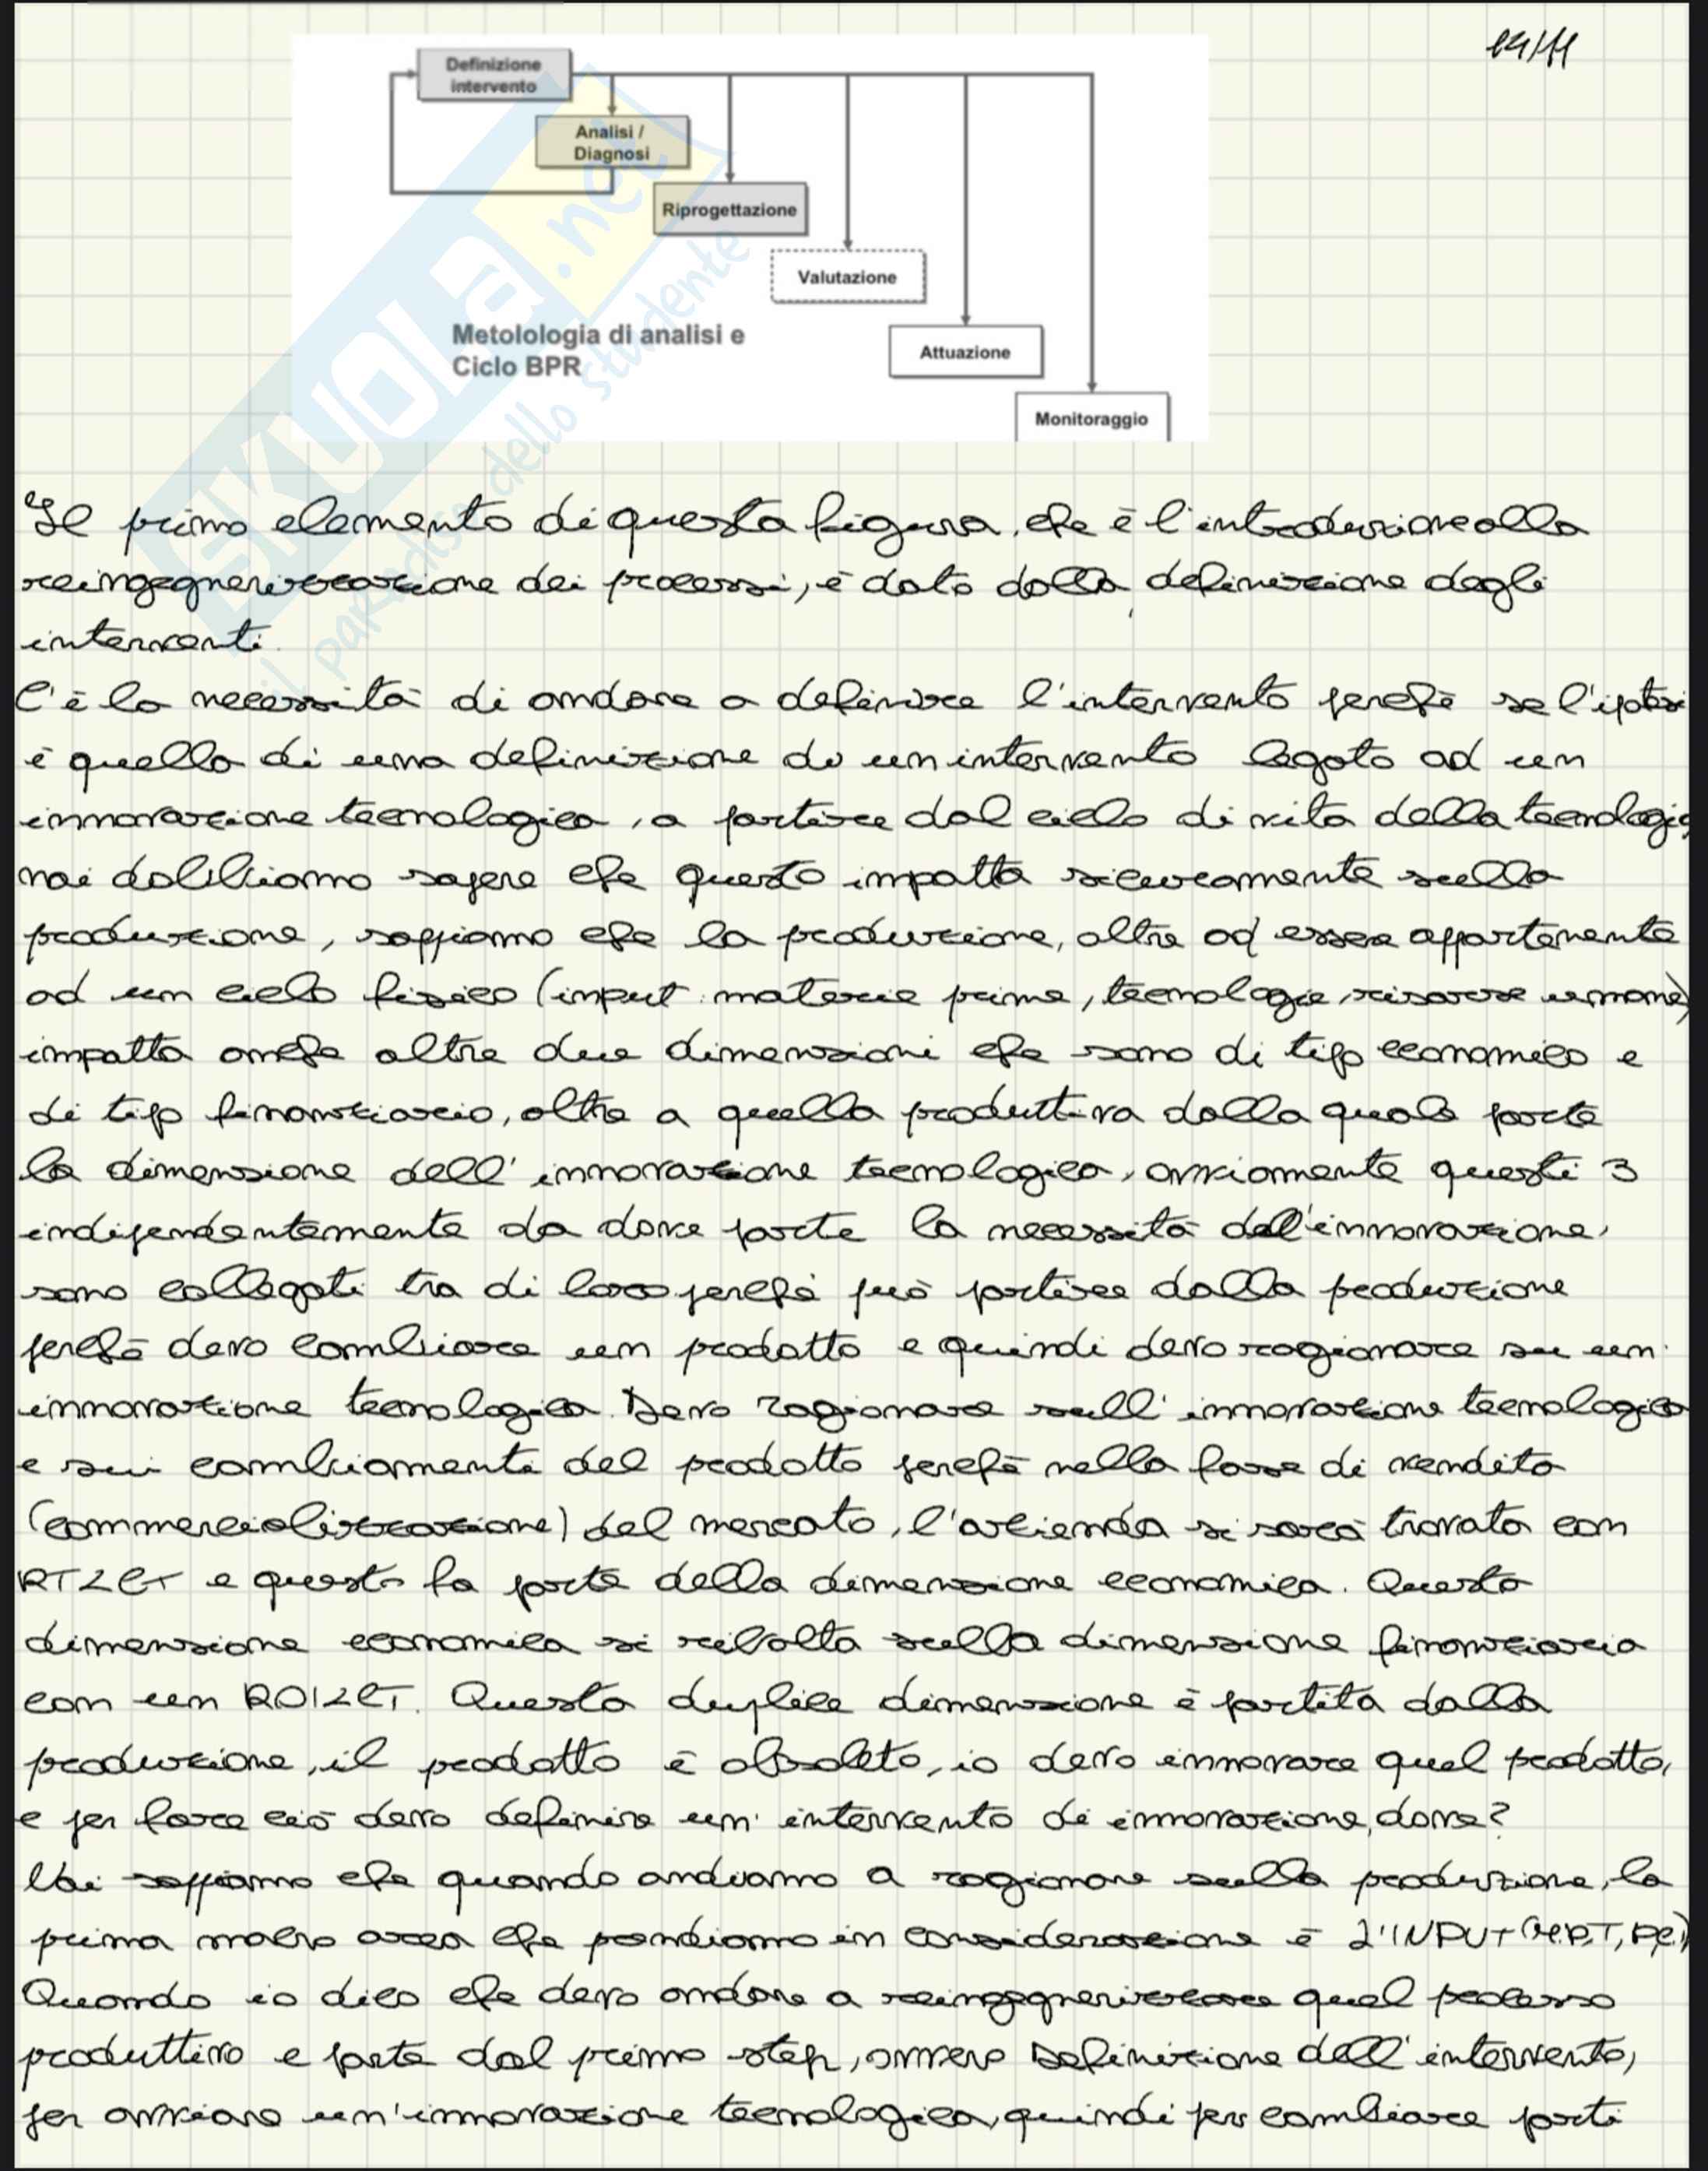 14/11
Definizione
intervento
Analisi /
Diagnosi
Riprogettazione
Valutazione
Metolologia di analisi e
Ciclo BPR
Attuazione
Monitoraggio
SKUOLA.net
il paradiso dello studente
Il primo elemento di questa figura, che è l'introduzione alla
reingegnerizzazione dei processi, è dato dalla definizione degli
interventi.
C'è la necessità di andare a definire l'intervento perché se l'ipotesi
è quella di una definizione di un intervento legato ad un
innovazione tecnologica, a partire dal ciclo di vita della tecnologia
noi dobbiamo sapere che questo impatta sicuramente sulla
produzione, sappiamo che la produzione, oltre ad essere appartenente
ad un ciclo fisico (input: materie prime, tecnologie, risorse umane)
impatta anche altre due dimensioni che sono di tipo economico e
di tipo finanziario, oltre a quella produttiva dalla quale parte
la dimensione dell'innovazione tecnologica, ovviamente questi 3
indipendentemente da dove parte la necessità dell'innovazione,
sono collegati tra di loro perché può partire dalla produzione
perché devo cambiare un prodotto e quindi devo ragionare su un'
innovazione tecnologica. Devo ragionare sull'innovazione tecnologica
e sui cambiamenti del prodotto perché nella fase di vendita
(commercializzazione) del mercato, l'azienda si sarà trovata con
RT<CT e questo fa parte della dimensione economica. Questa
dimensione economica si ribalta sulla dimensione finanziaria
con un ROI<CT. Questa duplice dimensione è partita dalla
produzione, il prodotto è obsoleto, io devo innovare quel prodotto,
e per fare ciò devo definire un' intervento di innovazione, dove?
Noi sappiamo che quando andiamo a ragionare sulla produzione, la
prima macro area che prendiamo in considerazione è L'INPUT (M.P,T,
Quando io dico che devo andare a reingegnerizzare quel processo
produttivo e parte dal primo step, ovvero Definizione dell'intervento,
per avviare un'innovazione tecnologica, quindi per cambiare parti